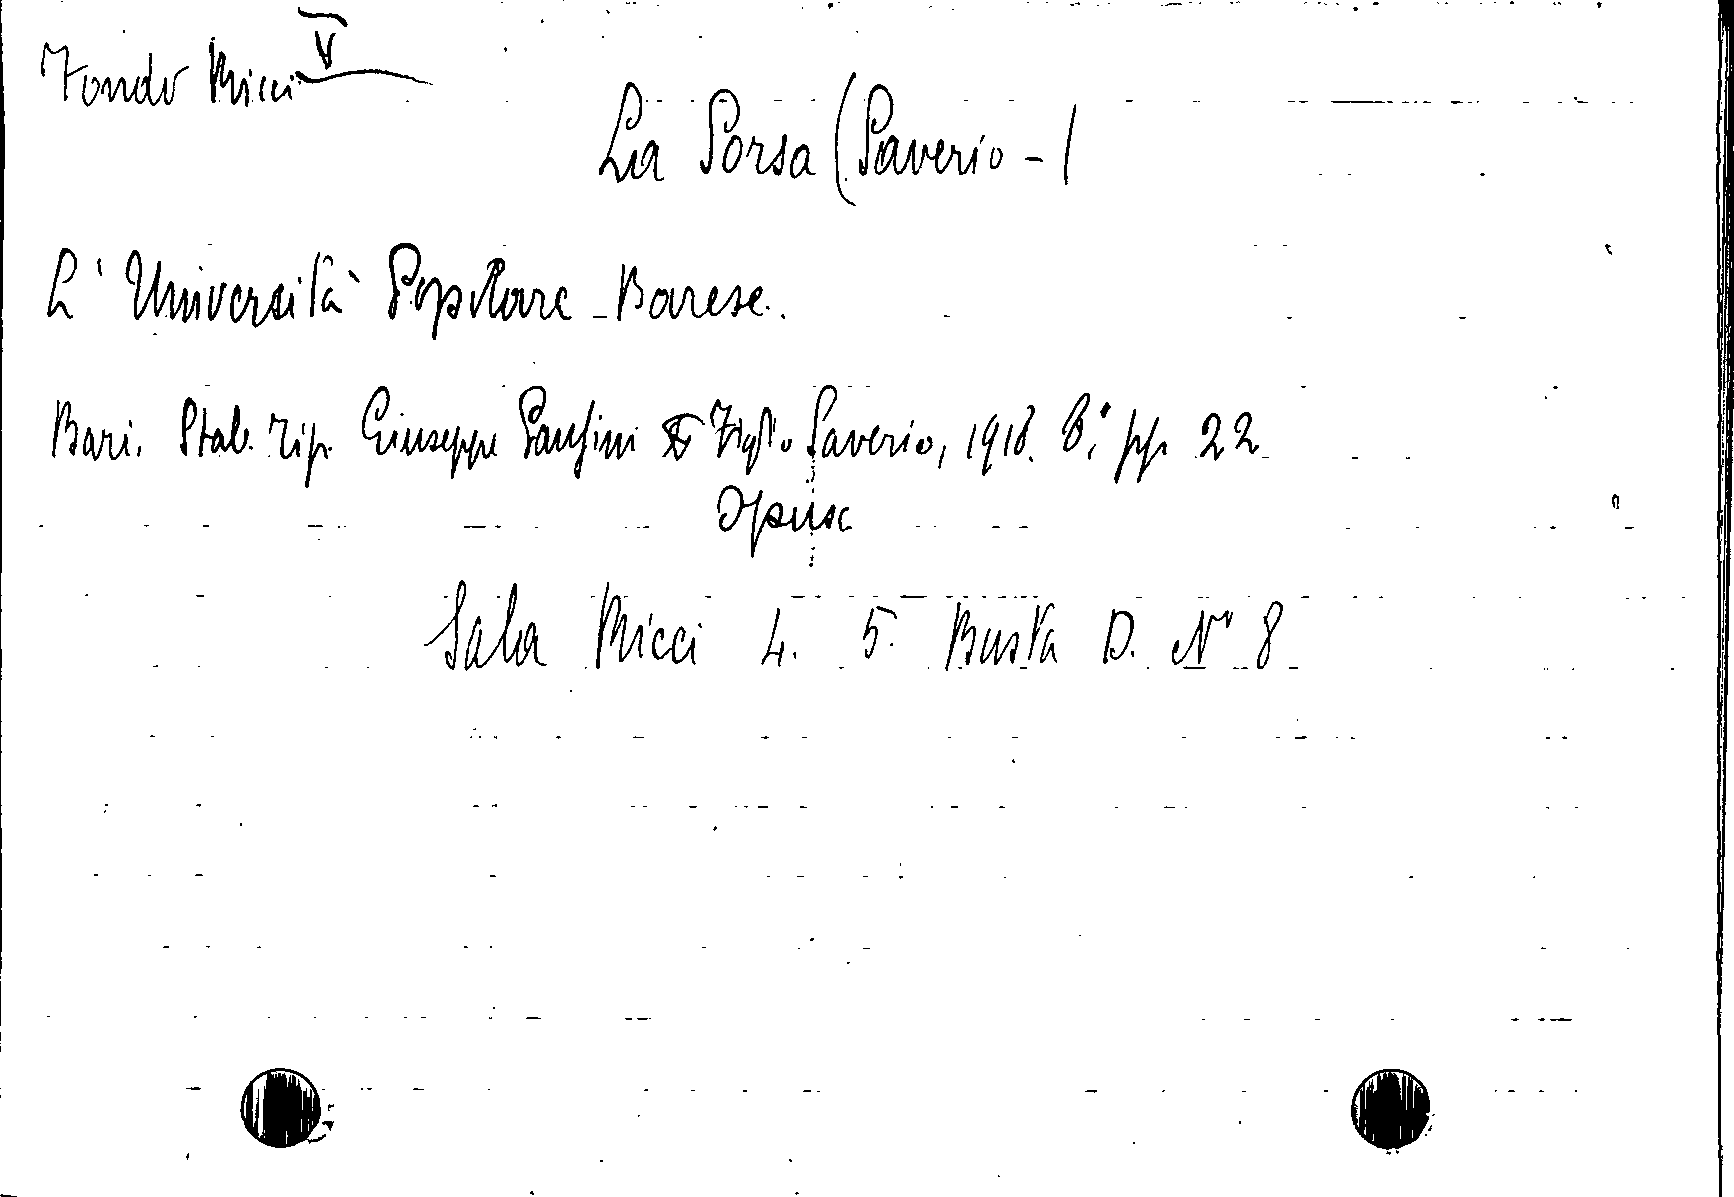 Fondo Ricci V
La Sorsa (Saverio - )
L'Università Popolare Barese.
Bari. Stab. Tip. Giuseppe Pansini & Figlio Saverio, 1918. 8.° pp. 22
Opusc
Sala Ricci 4. 5. Busta D. N° 8